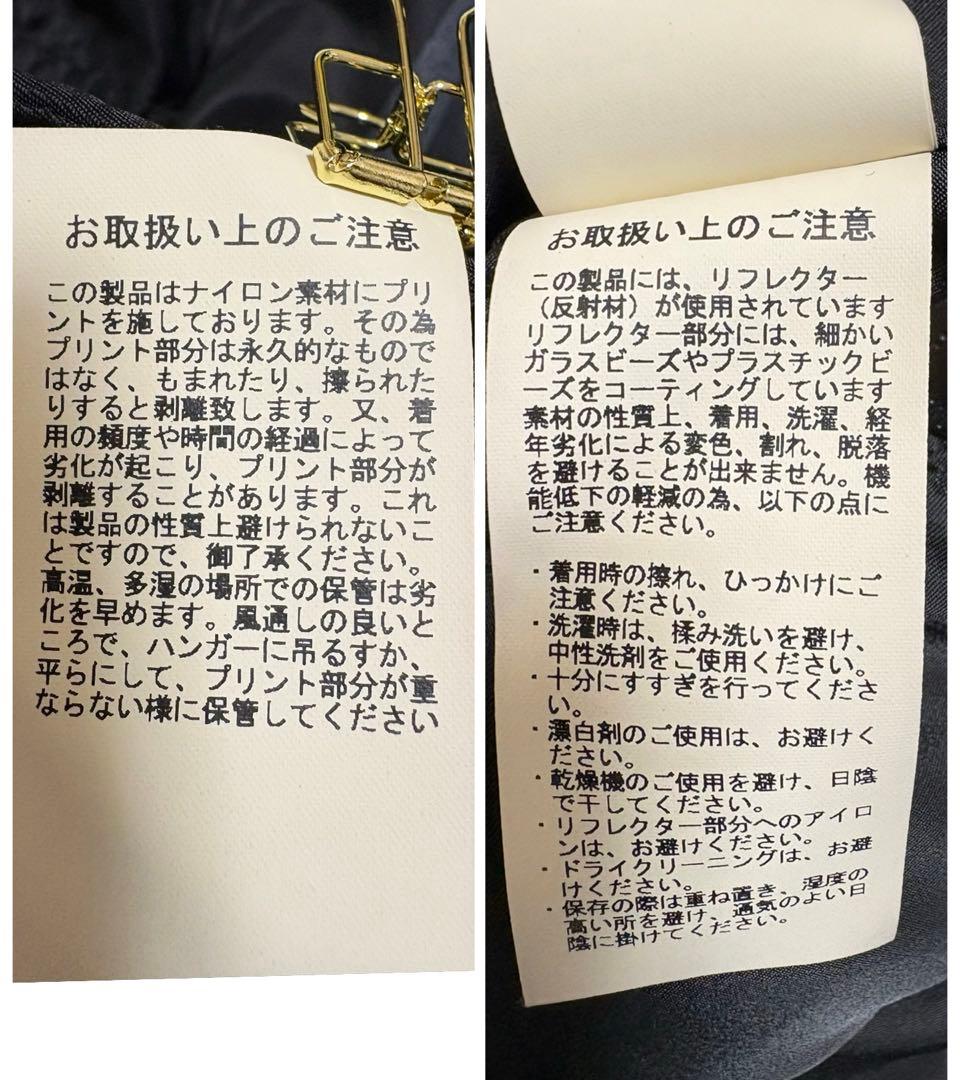 お取扱い上のご注意
この製品はナイロン素材にプリ
ントを施しております。その為
プリント部分は永久的なもので
はなく、もまれたり、擦られた
りすると剥離致します。又、着
用の頻度や時間の経過によって
劣化が起こり、プリント部分が
剥離することがあります。これ
は製品の性質上避けられないこ
とですので、御了承ください。
高温、多湿の場所での保管は劣
化を早めます。風通しの良いと
ころで、ハンガーに吊るすか、
平らにして、プリント部分が重
ならない様に保管してください
お取扱い上のご注意
この製品には、リフレクター
（反射材）が使用されています
リフレクター部分には、細かい
ガラスビーズやプラスチックビ
ーズをコーティングしています
素材の性質上、着用、洗濯、経
年劣化による変色、割れ、脱落
を避けることが出来ません。機
能低下の軽減の為、以下の点に
ご注意ください。
・着用時の擦れ、ひっかけにご
注意ください。
・洗濯時は、揉み洗いを避け、
中性洗剤をご使用ください。
・十分にすすぎを行ってくださ
い。
・漂白剤のご使用は、お避けく
ださい。
・乾燥機のご使用を避け、日陰
で干してください。
・リフレクター部分へのアイロ
ンは、お避けください。
・ドライクリーニングは、お避
けください。
・保存の際は重ね置き、湿度の
高い所を避け、通気のよい日
陰に掛けてください。